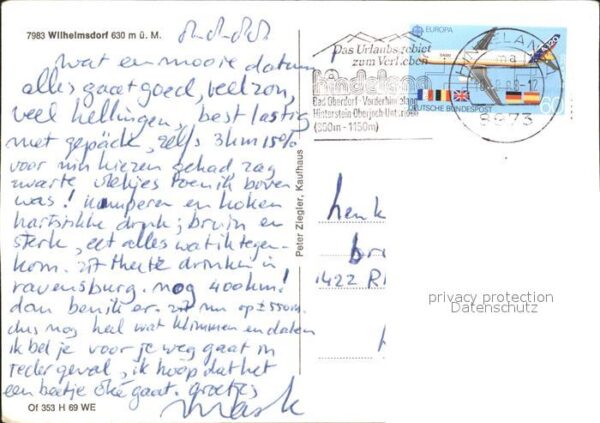 7983 Wilhelmsdorf 630 m ü. M.
8.8.88
wat een mooie datum
alles gaat goed, veel zon,
veel hellingen, best lastig
met gepäck, zelfs 3 km 15%
voor mijn kiezen gehad zag
zwarte vlekjes toen ik boven
was! kamperen en koken
hartstikke ; bruin en
sterk, eet alles wat ik tegen-
kom. zit thee te drinken in
ravensburg. nog 400 km!
dan ben ik er. zit nu op ± 550 m.
dus nog heel wat klimmen en dalen
ik bel je voor je weg gaat in
ieder geval, ik hoop dat het
een beetje oké gaat. groetjes
Mark
Of 353 H 69 WE
Peter Ziegler, Kaufhaus
EUROPA
DEUTSCHE BUNDESPOST
60
Das Urlaubsgebiet
zum Verleben
hindelang
Bad Oberdorf - Vorderhindelang
Hinterstein-Oberjoch-Unterjoch
(850m - 1150m)
HINDELANG
8973
henk
br
1422 R
privacy protection
Datenschutz